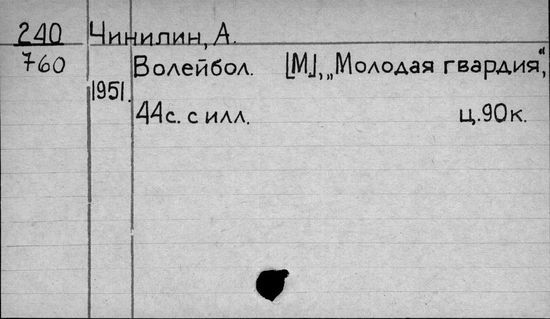 240 Чинилин, А.
760 Волейбол. [М.], „Молодая гвардия“,
1951.
44с. с илл. ц.90к.